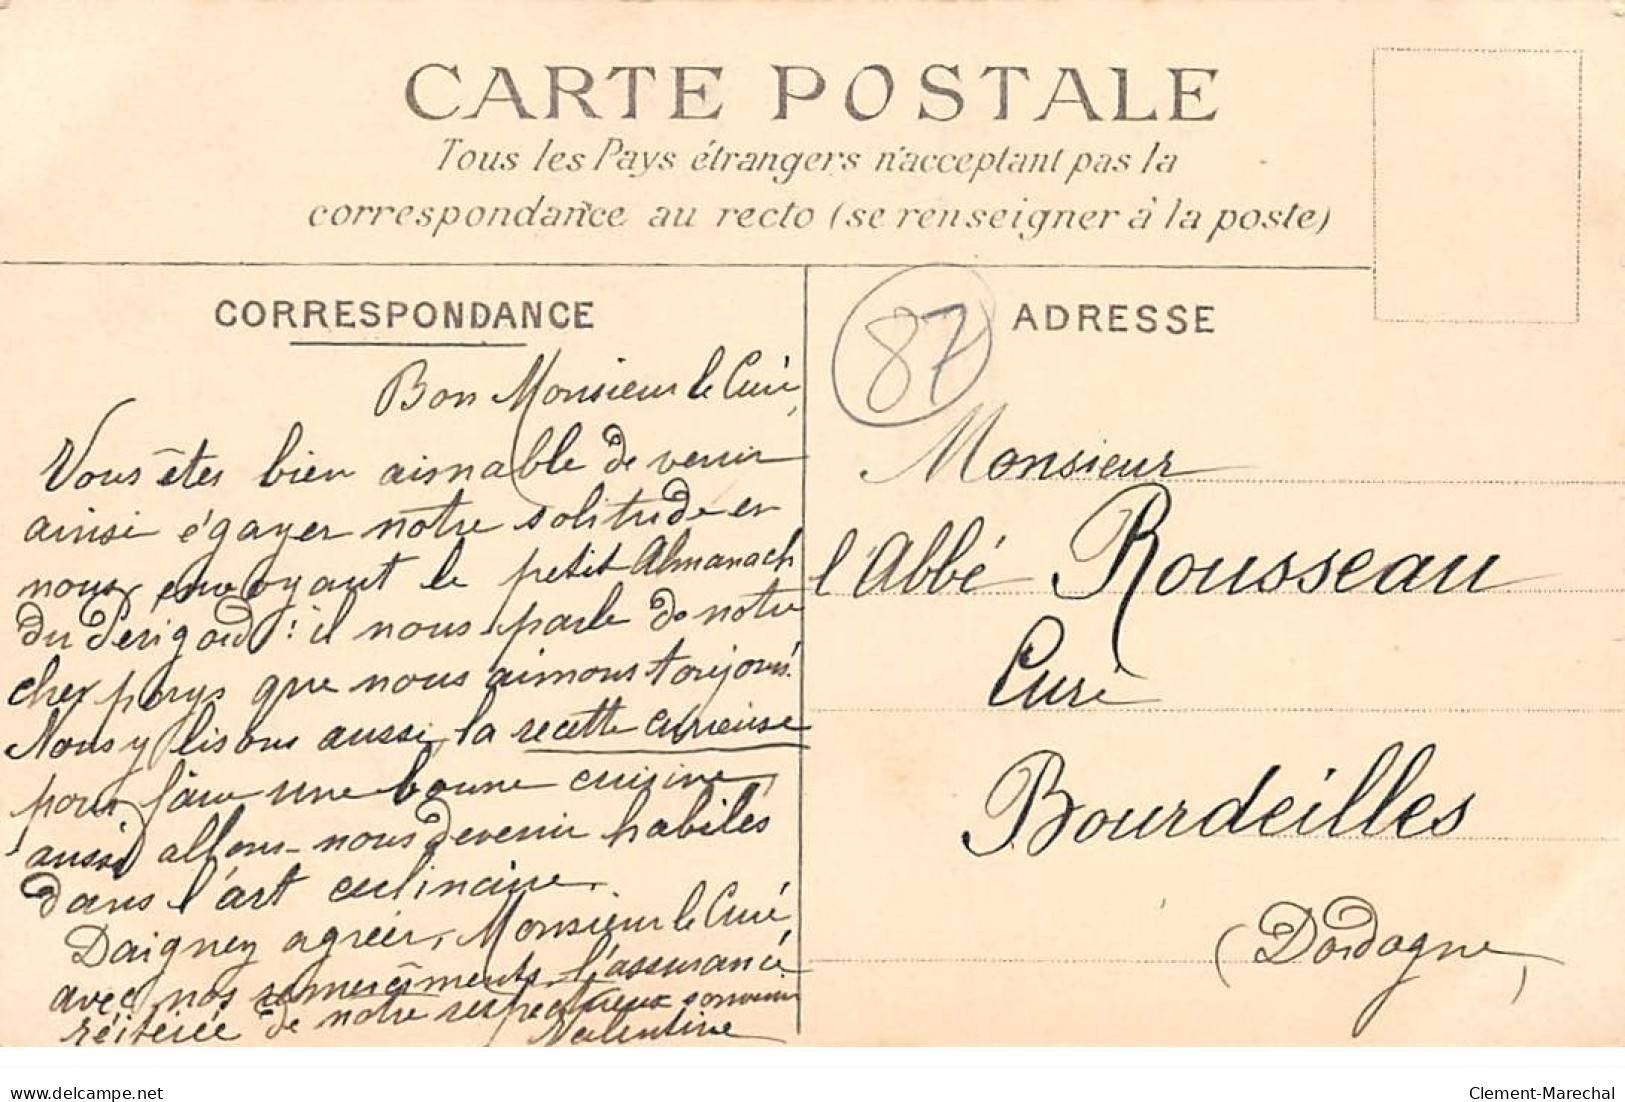 CARTE POSTALE
Tous les Pays étrangers n'acceptant pas la
correspondance au recto (se renseigner à la poste)
CORRESPONDANCE
Bon Monsieur le Curé,
Vous êtes bien aimable de venir
ainsi égayer notre solitude en
nous envoyant le petit Almanach
du Périgord : il nous parle de notre
cher pays que nous aimons toujours.
Nous y lisons aussi la recette curieuse
pour faire une bonne cuisine,
aussi allons-nous devenir habiles
dans l'art culinaire.
Daignez agréer, Monsieur le Curé,
avec nos remerciements, l'assurance
réitérée de notre respectueux souvenir
Valentine
87
ADRESSE
Monsieur
l'Abbé Rousseau
Curé
Bourdeilles
(Dordogne)
delcampe.net
Clement-Marechal